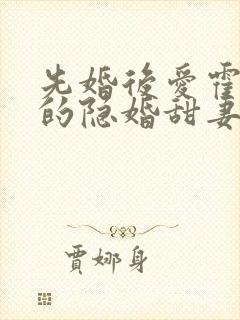 先婚後愛霍
的隐婚甜妻
賈娜身